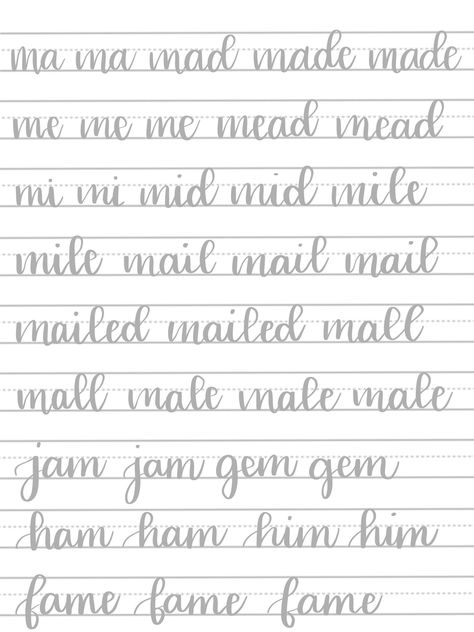 ma ma mad made made
me me me mead mead
mi mi mid mid mile
mile mail mail mail
mailed mailed mall
mall male male male
jam jam gem gem
ham ham him him
fame fame fame